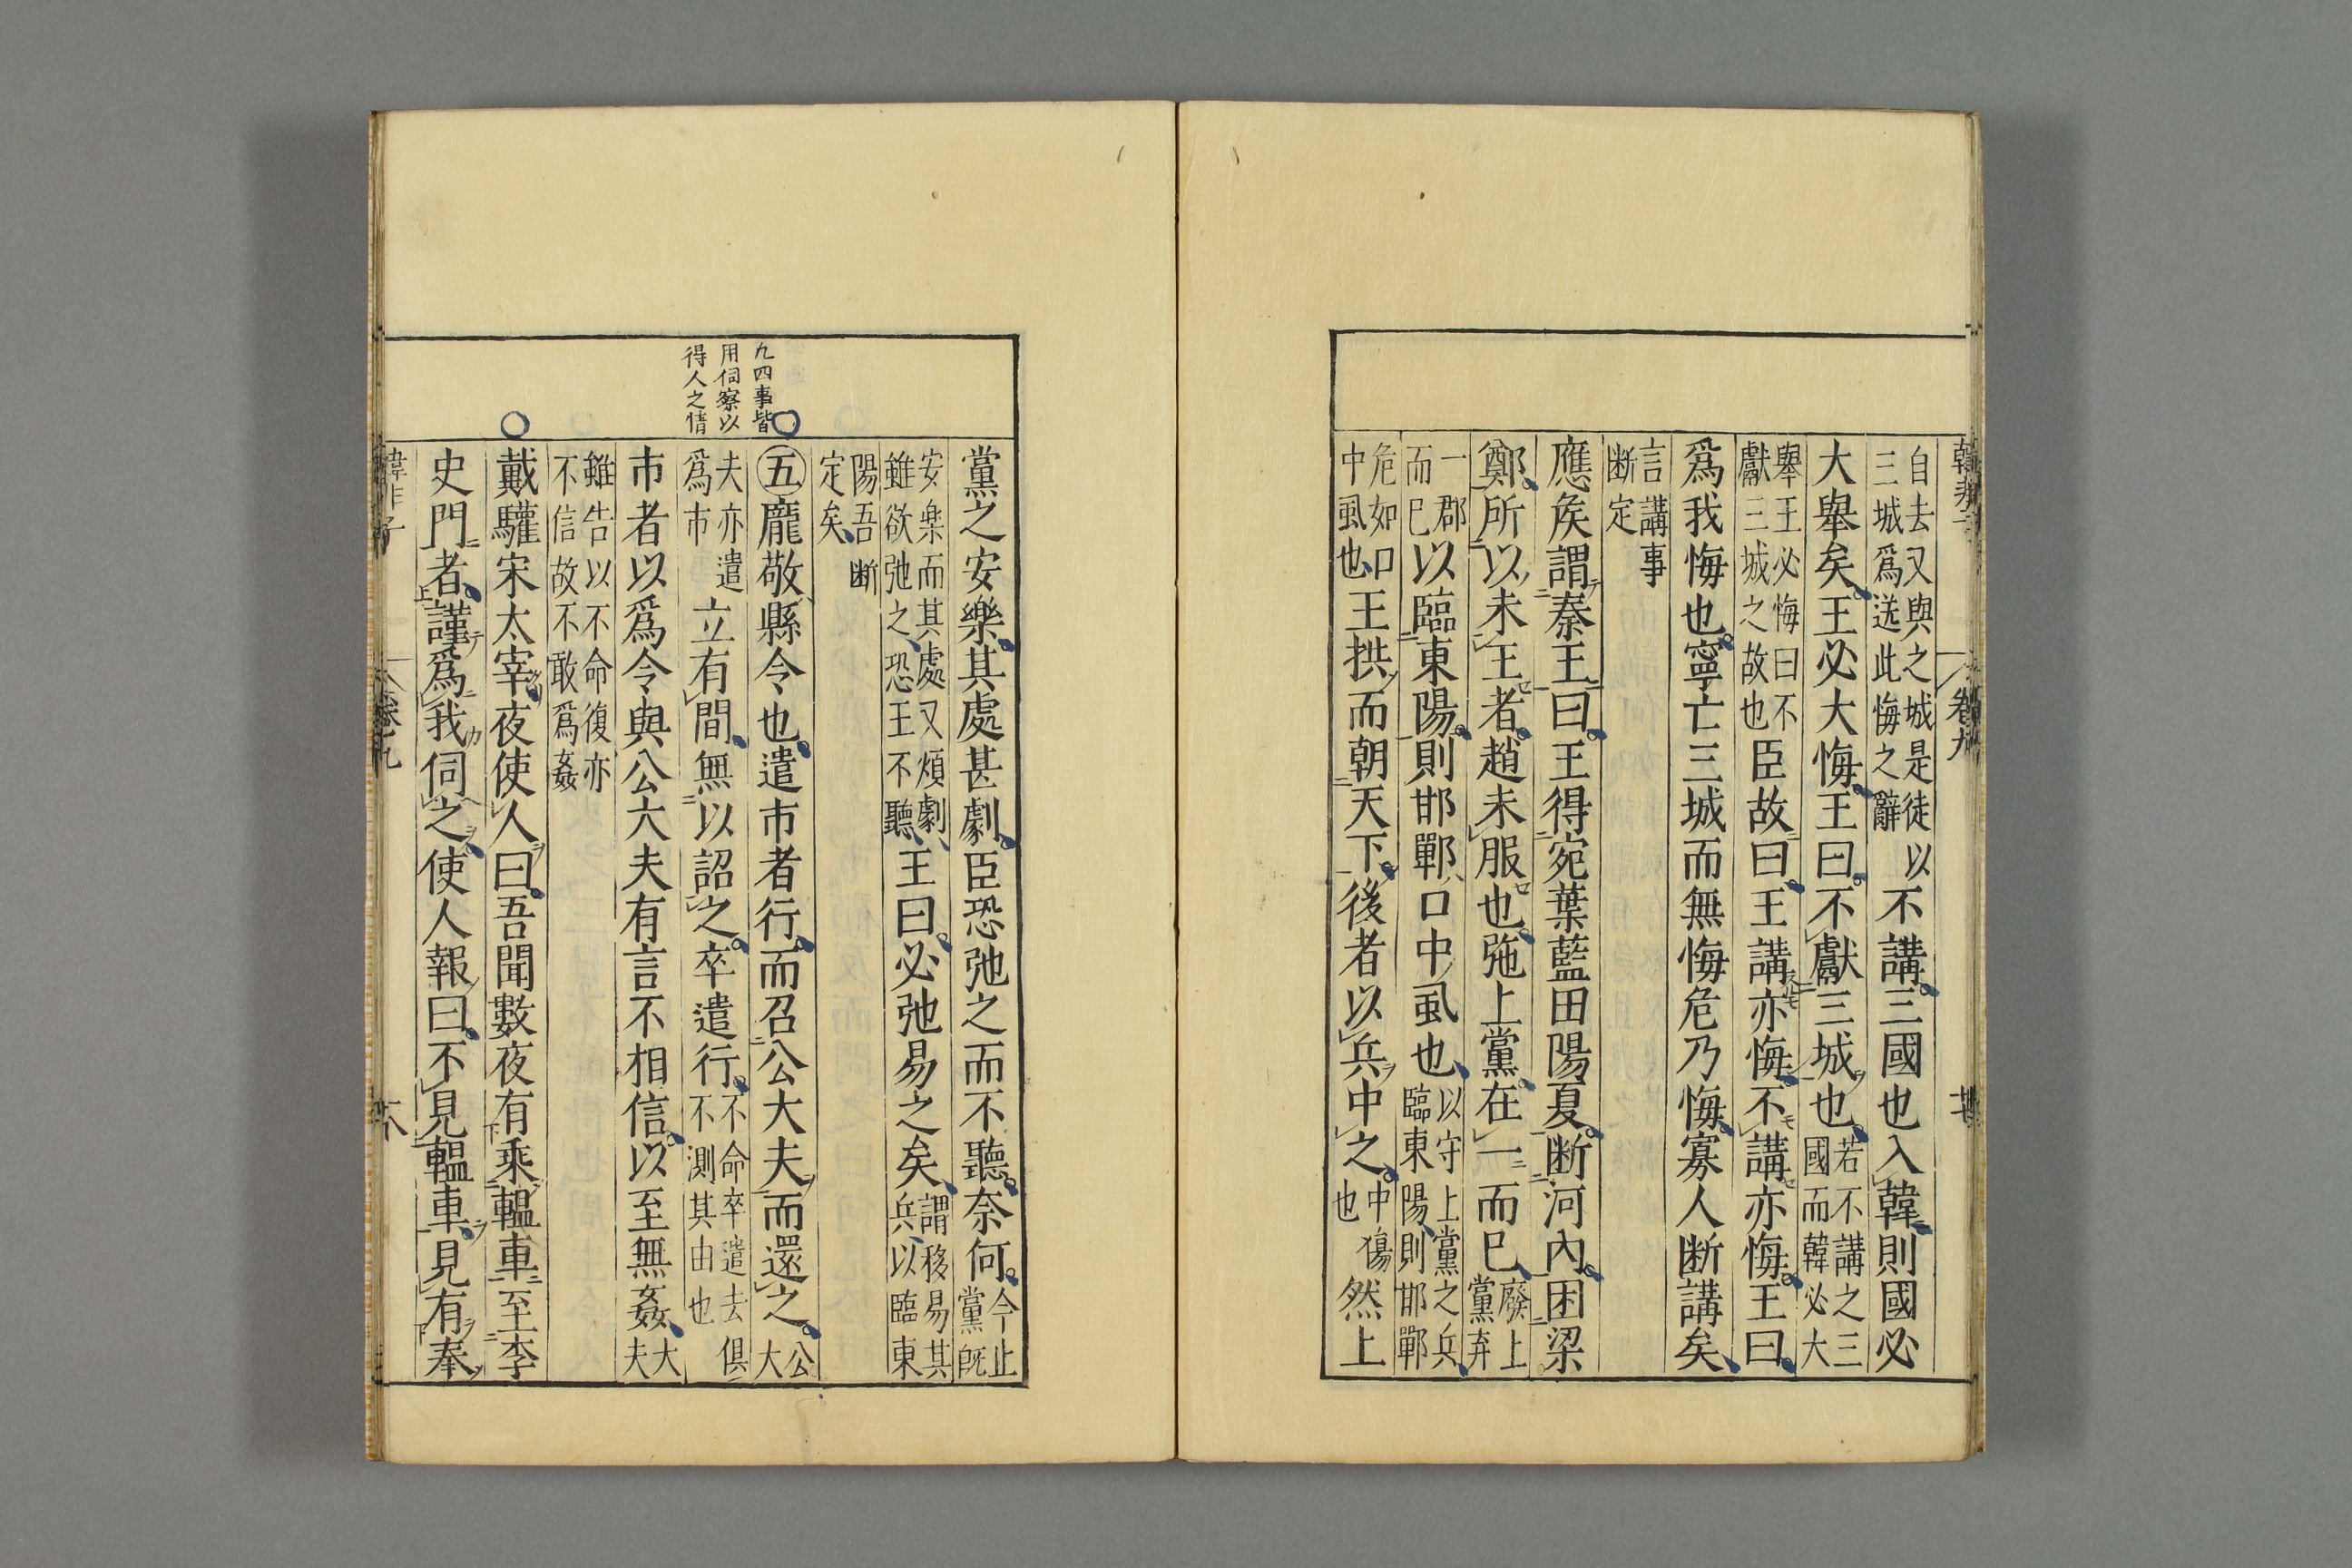 自去又與之城是徒以
三城爲送此悔之辭
不講三國也入韓則國必
大舉矣王必大悔王曰不獻三城也
若不講之三
國而韓必大
舉王必悔曰不
獻三城之故也
臣故曰王講亦悔不講亦悔王曰
爲我悔也寧亡三城而無悔危乃悔寡人断講矣
言講事
断定
應矦謂秦王曰王得宛葉藍田陽夏断河內困梁
鄭所以未王者趙未服也弛上黨在一而已
廢上
黨弃
一郡
而已
以臨東陽則邯鄲口中虱也
以守上黨之兵
臨東陽則邯鄲
危如口
中虱也
王拱而朝天下後者以兵中之
中傷
也
然上
黨之安樂其處甚劇臣恐弛之而不聽奈何
今止
黨既
安楽而其處又煩劇
雖欲弛之恐王不聽
王曰必弛易之矣
謂移易其
兵以臨東
陽吾断
定矣
五龐敬縣令也遣市者行而召公大夫而還之
公
大
夫亦遣
爲市
立有間無以詔之卒遣行
不命卒遣去俱
不測其由也
市者以爲令與公大夫有言不相信以至無姦
大
夫
雖告以不命復亦
不信故不敢爲姦
戴驩宋太宰夜使人曰吾聞數夜有乘轀車至李
史門者謹爲我伺之使人報曰不見轀車見有奉
九四事皆
用伺察以
得人之情
卷九